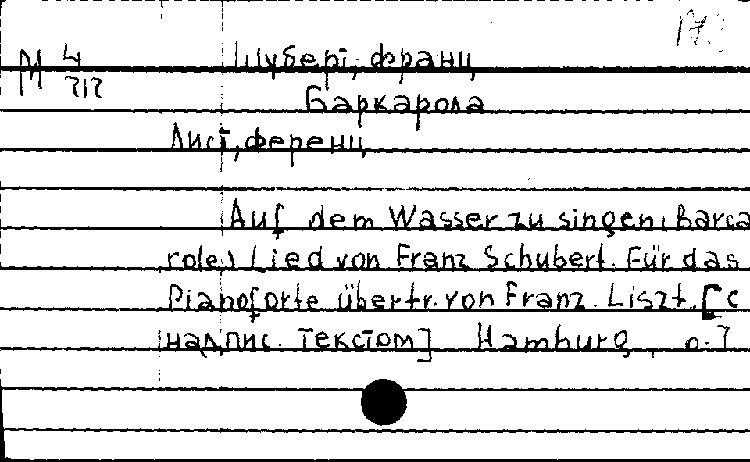 М 4 Шуберт, Франц
212
Баркарола
Лист, Ференц
Auf dem Wasser zu singen (Barca
role.) Lied von Franz Schubert. Für das
Pianoforte übertr. von Franz Liszt. [с
надпис. текстом] Hamburg,